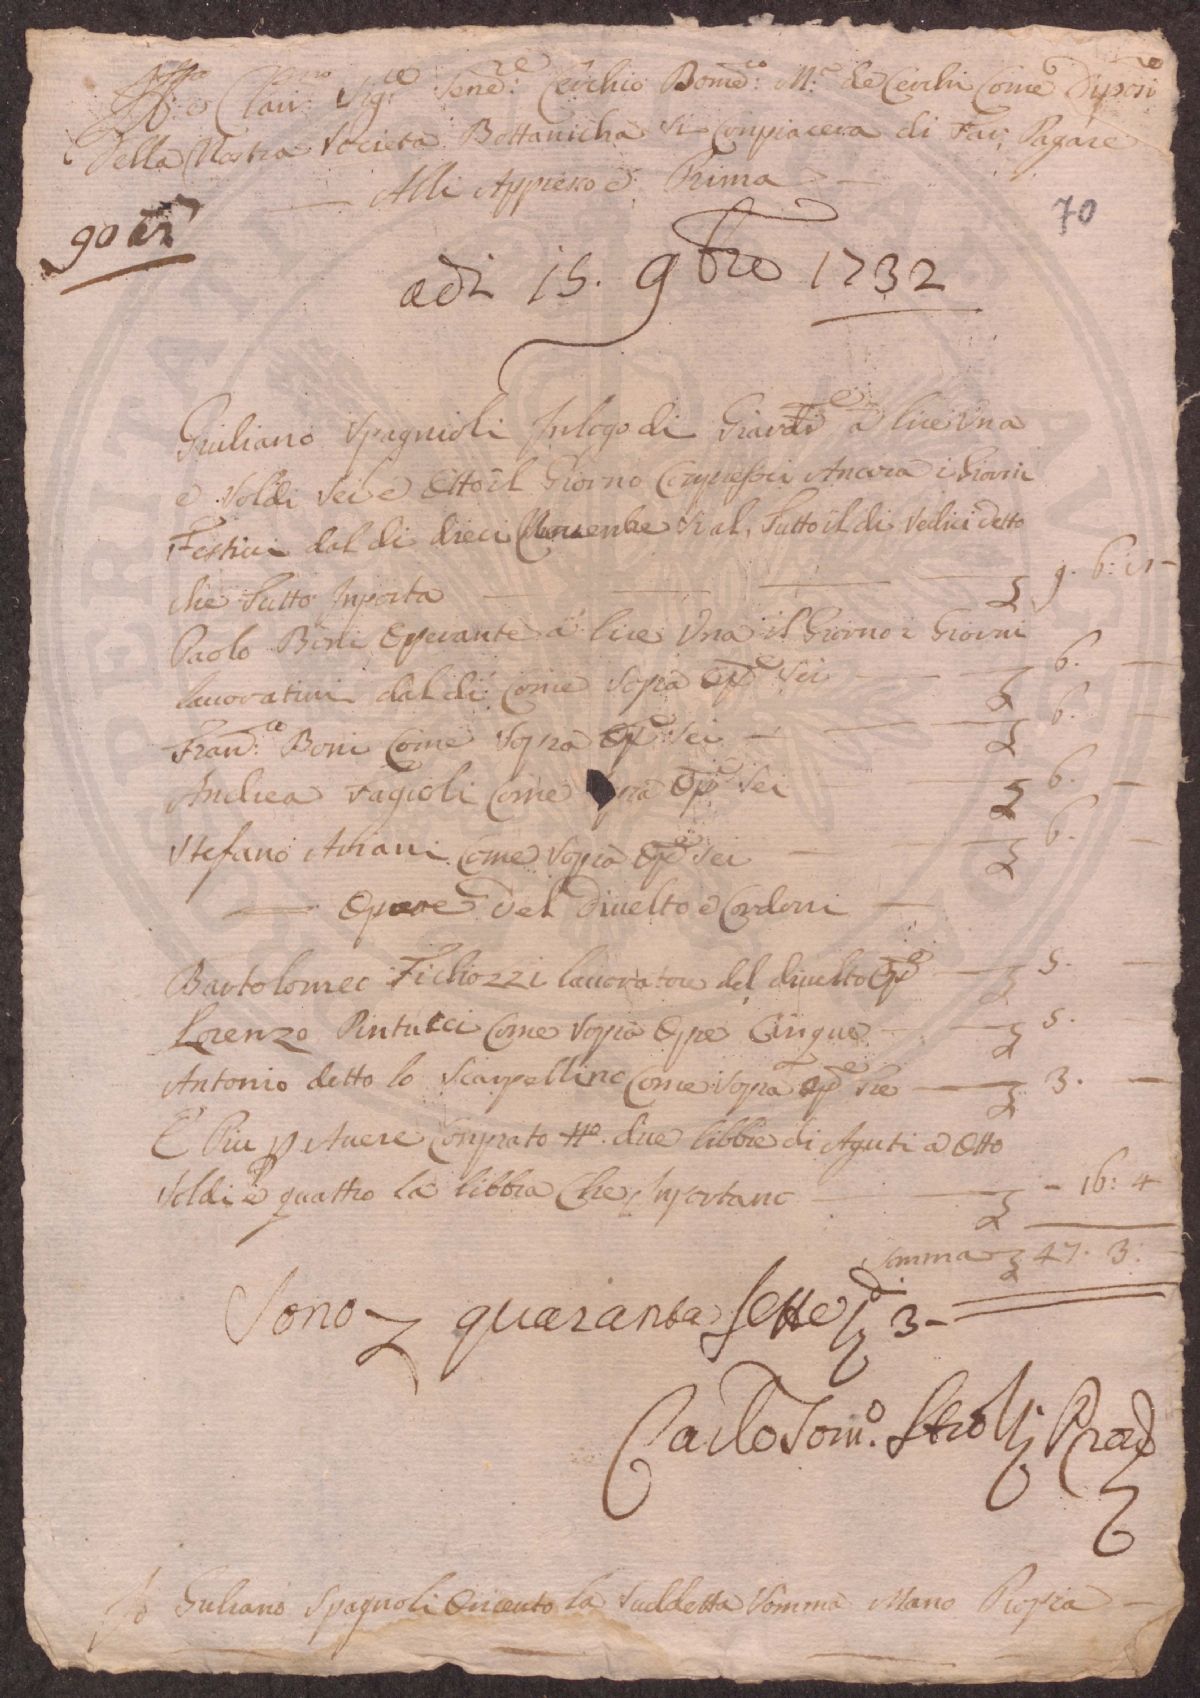 Ill.mo e Clar.mo Sig.re Sena.re Cerchio Bom.o M.a de Cerchi Come Diposi.rio
Della Nostra Società Bottanicha Si Conpiacera di Far Pagare
Alli Appresso e Prima
70
adi 15. 9bre 1732
Giuliano Spagnioli Inlogo di Giard.e a lire Una
e Soldi Sei e Otto il Giorno Conpresoci Ancora i Giorni
Festivi dal di dieci Novenbre Si al Tutto il di Sedici detto
che Tutto Inporta
Paolo Bini Operante a lire Una il Giorno i Giorni
lavorativi dal di Come Sopra Op.e Sei 6. —
Fran.co Boni Come Sopra Op.e Sei 6. —
Andrea Fagioli Come Op.e Sei 6. —
Stefano Come Sopra Op.e Sei 6. —
Opere del Divelto e Cordoni
Bartolomeo Fichozzi lavoratore del divelto Op.e 5. —
Lorenzo Pintucci Come Sopra Opre Cinque 5. —
Antonio detto lo Scarpellino Come Sopra Op.e Tre 3. —
E Piu p Avere Conprato due libbre di Aguti a Otto
Soldi e quattro la libbra Che Inportano — 16: 4
Somma 47. 3.
Sono quaranta sette 3 –
Carlo Tom.o Strozzi
Io Guliano Spagnoli la Suddetta Somma Mano Propia